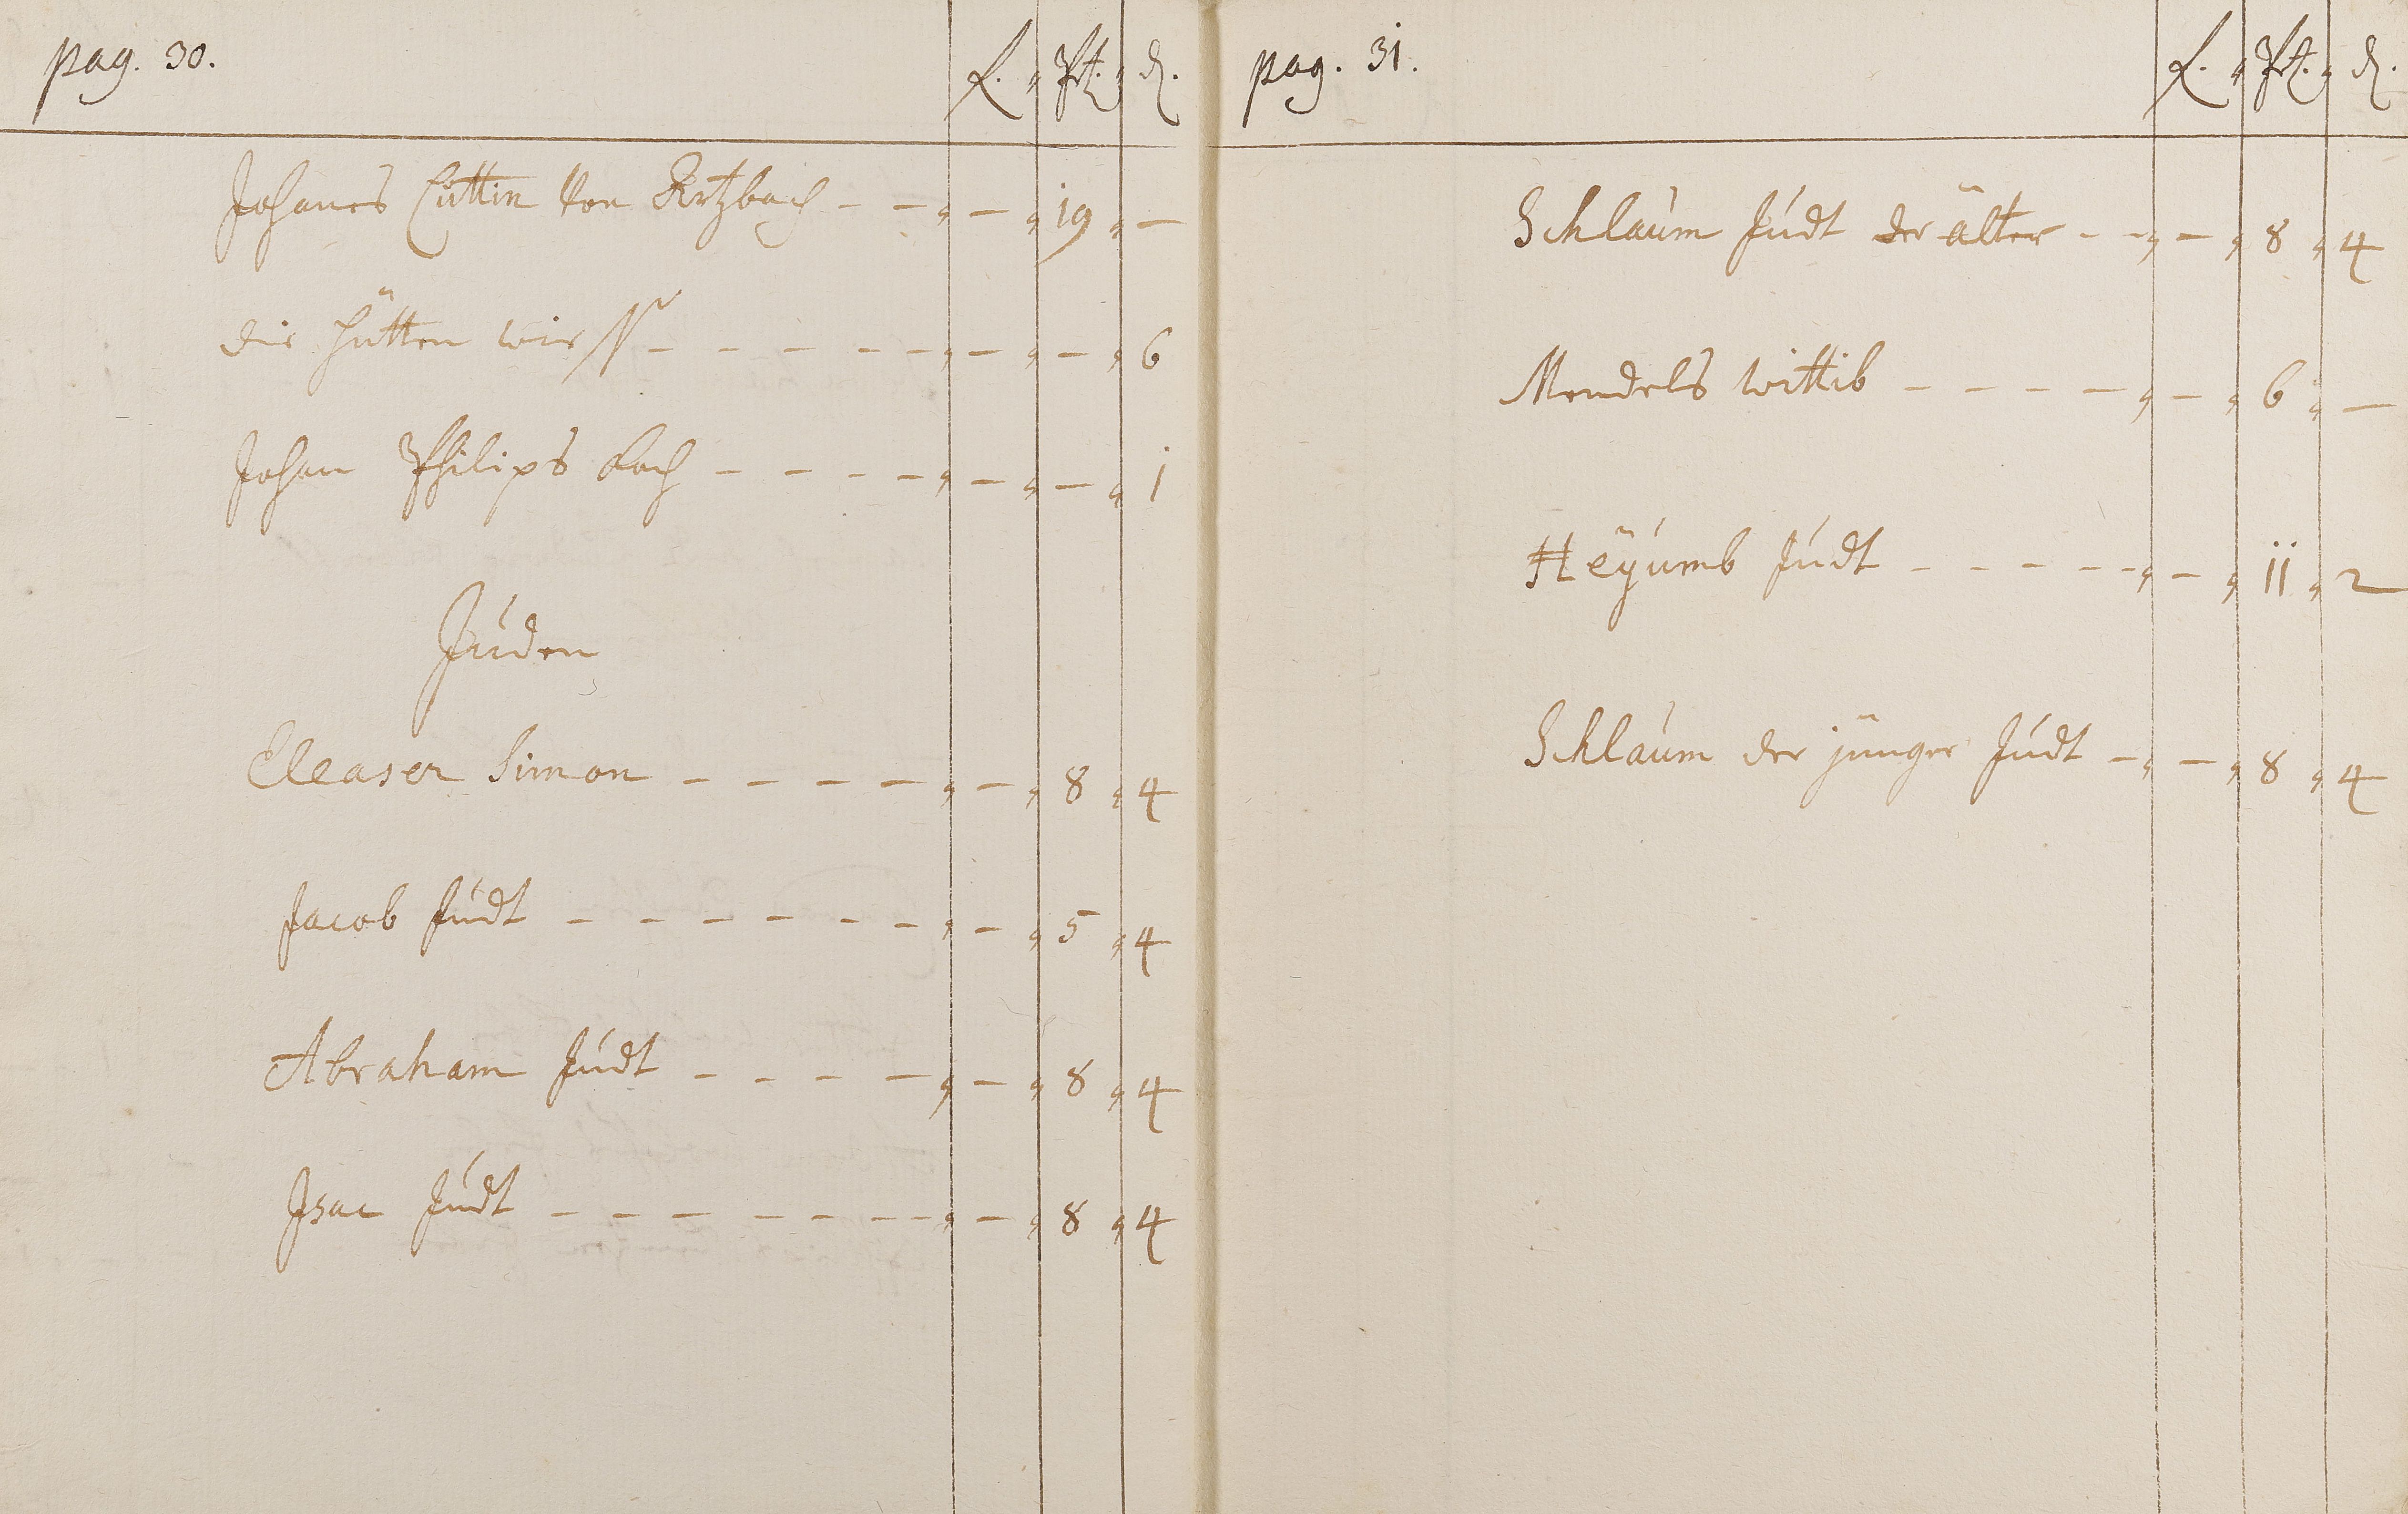 pag. 30. f. " Pat. " d.
Johanes Cüttin von Retzbach - - " - " 19 " -
die hütten wies - - - - - " - " - " 6
Johan Philips Koch - - - - " - " - " 1
Juden
Eleaser Simon - - - - " - " 8 " 4
Jacob Judt - - - - - - " - " 5 " 4
Abraham Judt - - - - " - " 8 " 4
Isac Judt - - - - - - - " - " 8 " 4
pag. 31. f. " Pat. " d.
Schlaum Judt der älter - - " - " 8 " 4
Mendels wittib - - - - " - " 6 " -
Heÿumb Judt - - - - - " - " 11 " 2
Schlaum der jünger Judt - " - " 8 " 4